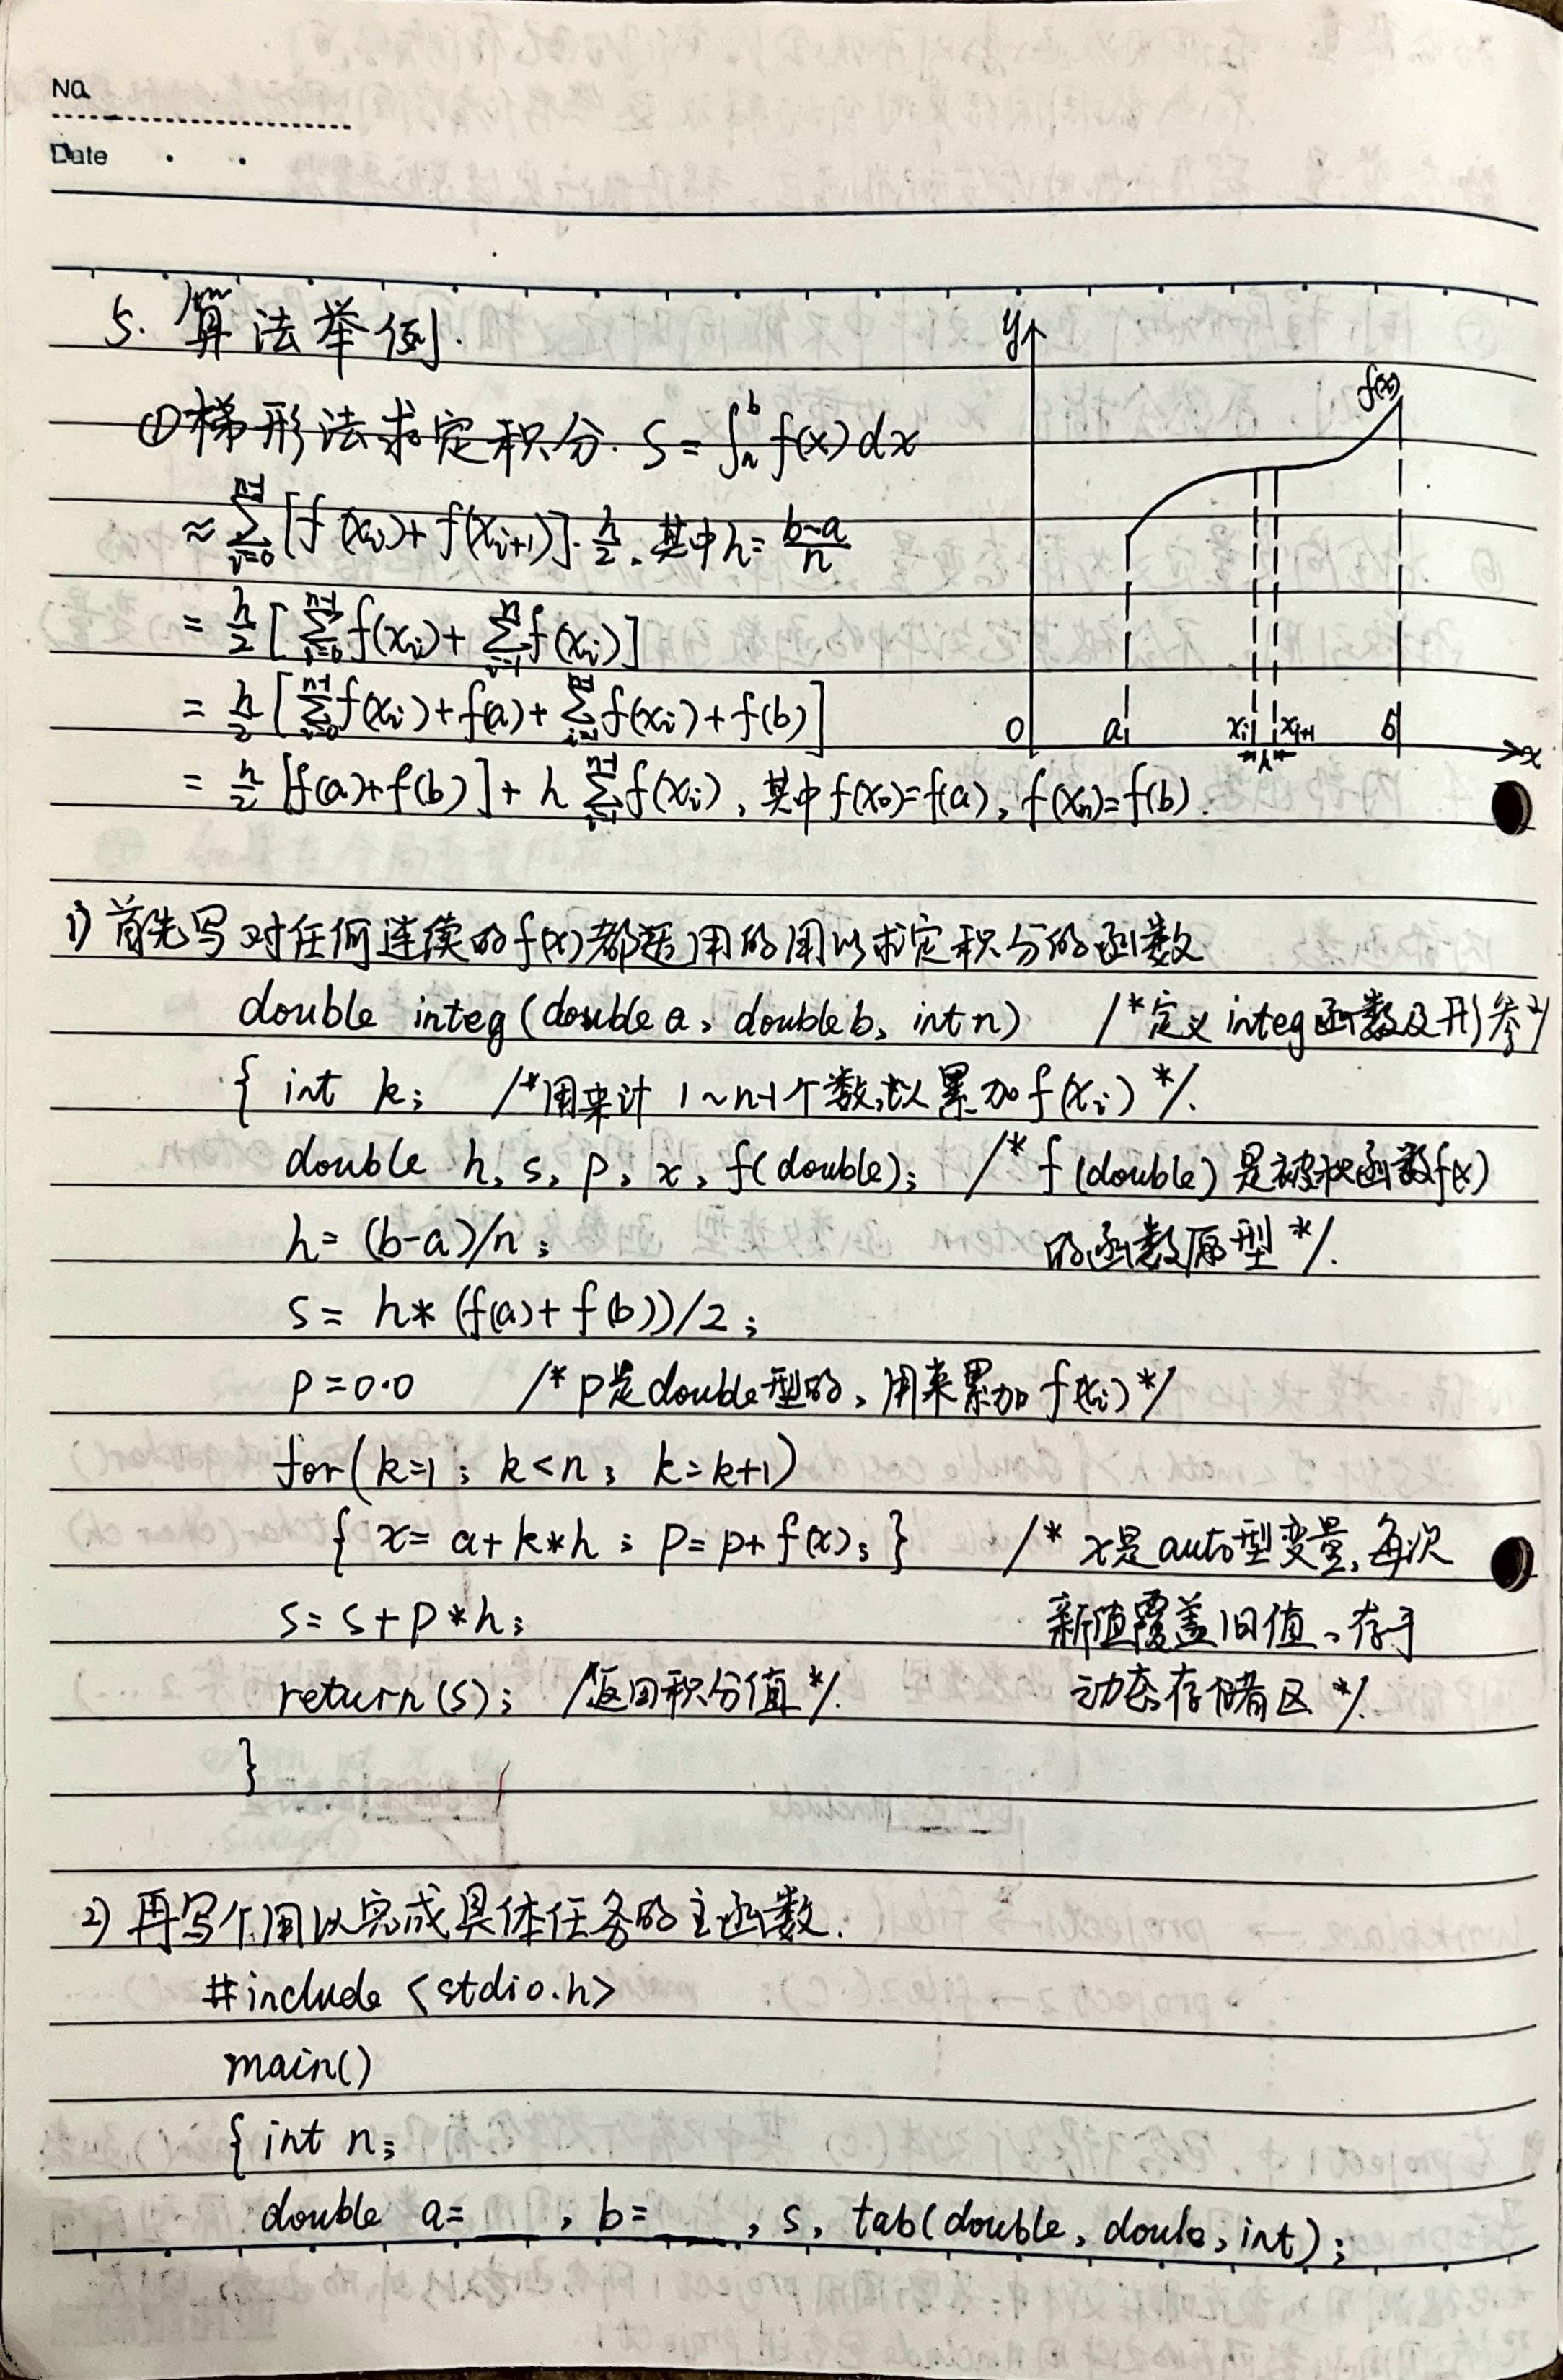 No
Date
5. 算法举例.
①梯形法求定积分. S=∫_a^b f(x)dx
≈ ∑_{i=0}^{n-1} [f(x_i)+f(x_{i+1})]·h/2. 其中h=(b-a)/n
= h/2 [∑_{i=0}^{n-1} f(x_i)+ ∑_{i=1}^{n} f(x_i)]
= h/2 [∑_{i=0}^{n-1} f(x_i)+f(a)+ ∑_{i=1}^{n-1} f(x_i)+f(b)]
= h/2 [f(a)+f(b)]+ h ∑_{i=1}^{n-1} f(x_i), 其中f(x_0)=f(a), f(x_n)=f(b).
y
f(x)
0 a x_i x_{i+1} b x
h
1) 首先写对任何连续的f(x)都适用的用以求定积分的函数
double integ(double a, double b, int n) /*定义integ函数及形参*/
{ int k; /*用来计 1~n-1个数,以累加f(x_i)*/.
double h, s, p, x, f(double); /* f(double)是被积函数f(x)
h= (b-a)/n; 的函数原型*/.
s= h*(f(a)+f(b))/2;
p=0.0 /*p是double型的,用来累加f(x_i)*/
for(k=1; k<n; k=k+1)
{ x= a+k*h; p=p+f(x); } /* x是auto型变量,每次
s=s+p*h; 新值覆盖旧值,存于
return(s); /*返回积分值*/. 动态存储区*/.
}
2) 再写个用以完成具体任务的主函数.
#include <stdio.h>
main()
{ int n;
double a=___, b=___, s, tab(double, doule, int);